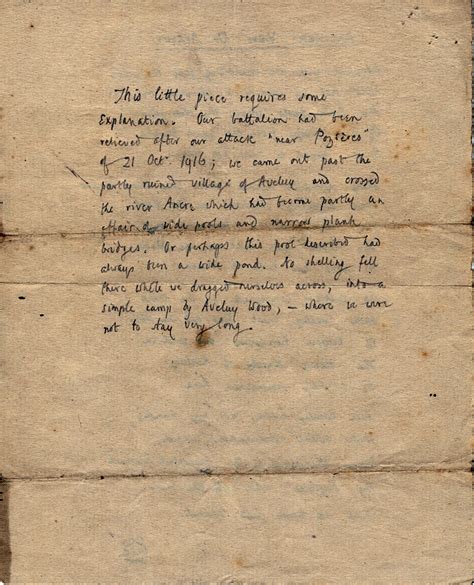 This little piece requires some
explanation. Our battalion had been
relieved after our attack "near Pozières"
of 21 Oct. 1916; we came out past the
partly ruined village of Aveluy and crossed
the river Ancre which had become partly an
affair of wide pools and narrow plank
bridges. Or perhaps this pool described had
always been a wide pond. No shelling fell
there while we dragged ourselves across, into a
simple camp by Aveluy Wood, – where we were
not to stay very long.